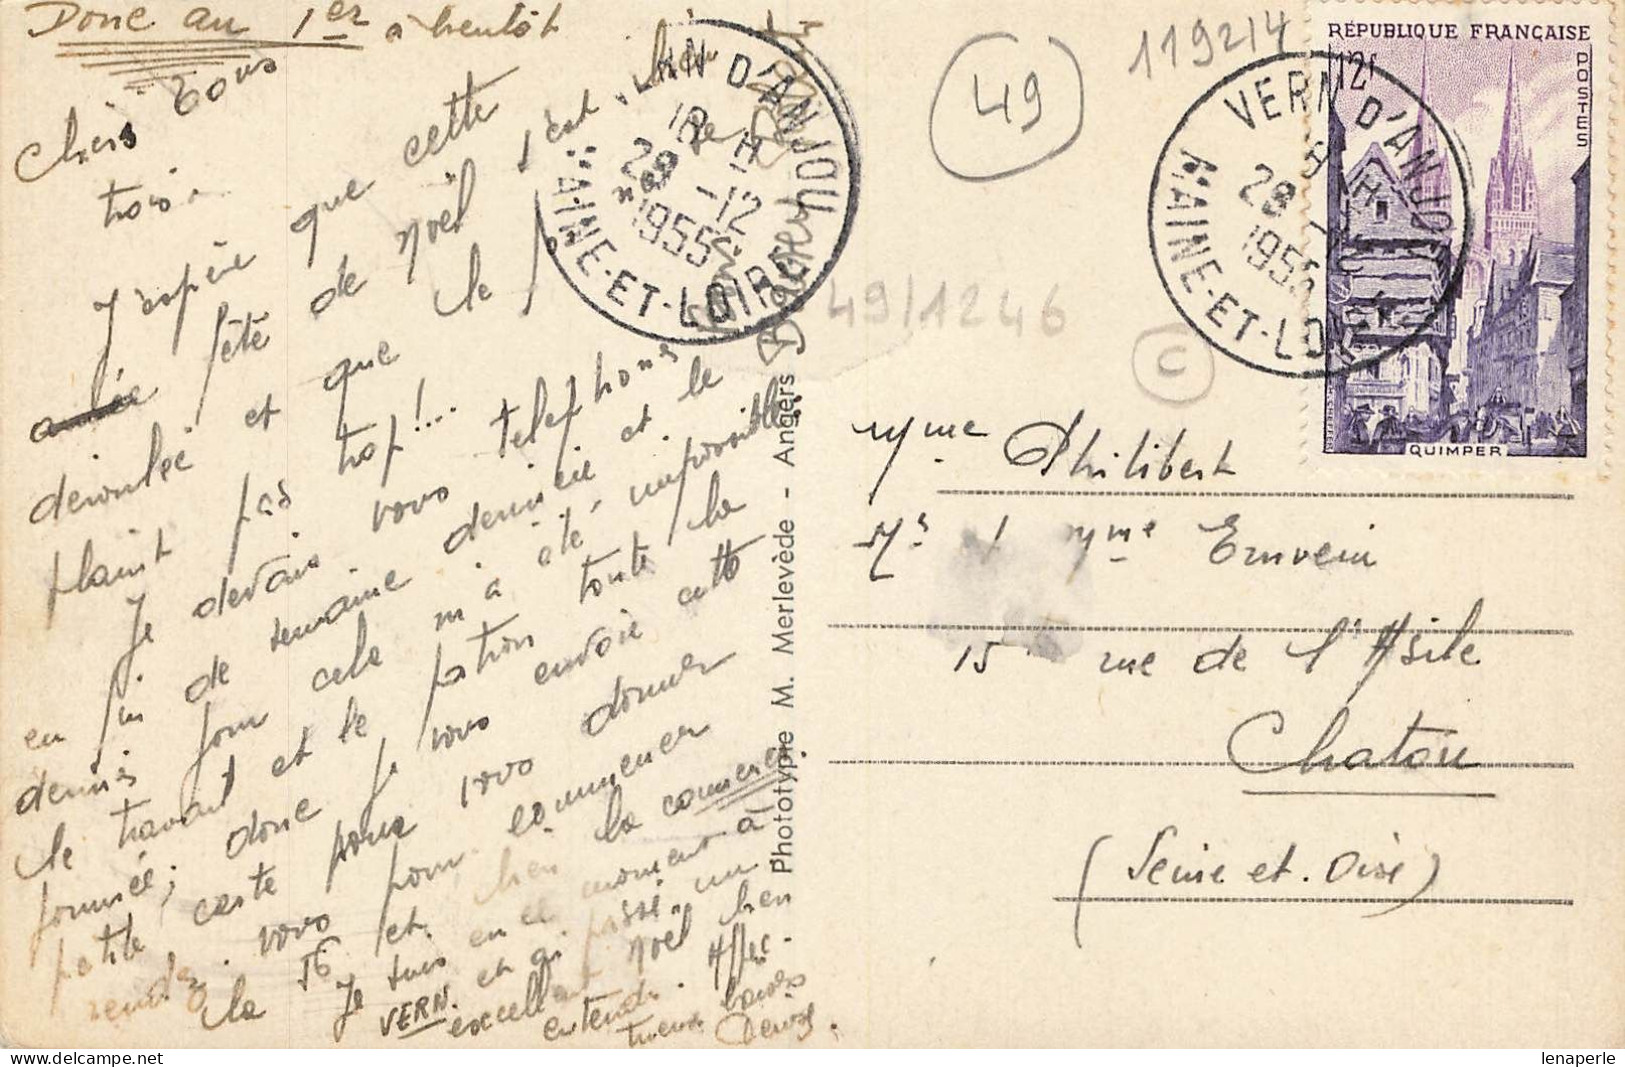 Donc au 1er à bientôt
Chers tous
trois.
J'espère que cette
fête de Noël s'est bien
déroulée et que le
plaint pas trop!...
Je devais vous téléphoner
en fin de semaine dernière et le
dernier jour cela m'a été impossible
le travail et le patron toute la
journée; donc je vous envoie cette
petite carte pour vous donner
rendez-vous pour commencer
le 56 et bien la commencer.
Je suis en ce moment à
VERN. et j'ai passé un
excellent Noël bien
entendu. Affec-
tueux baisers
Denise.
VERN D'ANJOU
18 H
28 -12
1955
MAINE-ET-LOIRE
49
119214
49/1246
C
VERN D'ANJOU
18 H
28 -12
1955
MAINE-ET-LOIRE
RÉPUBLIQUE FRANÇAISE
POSTES
12F
QUIMPER
Phototypie M. Merlevède - Angers
Mme Philibert
Mr et Mme Ernvein
15 rue de l'Asile
Chatou
(Seine et. Oise)
lenaperle